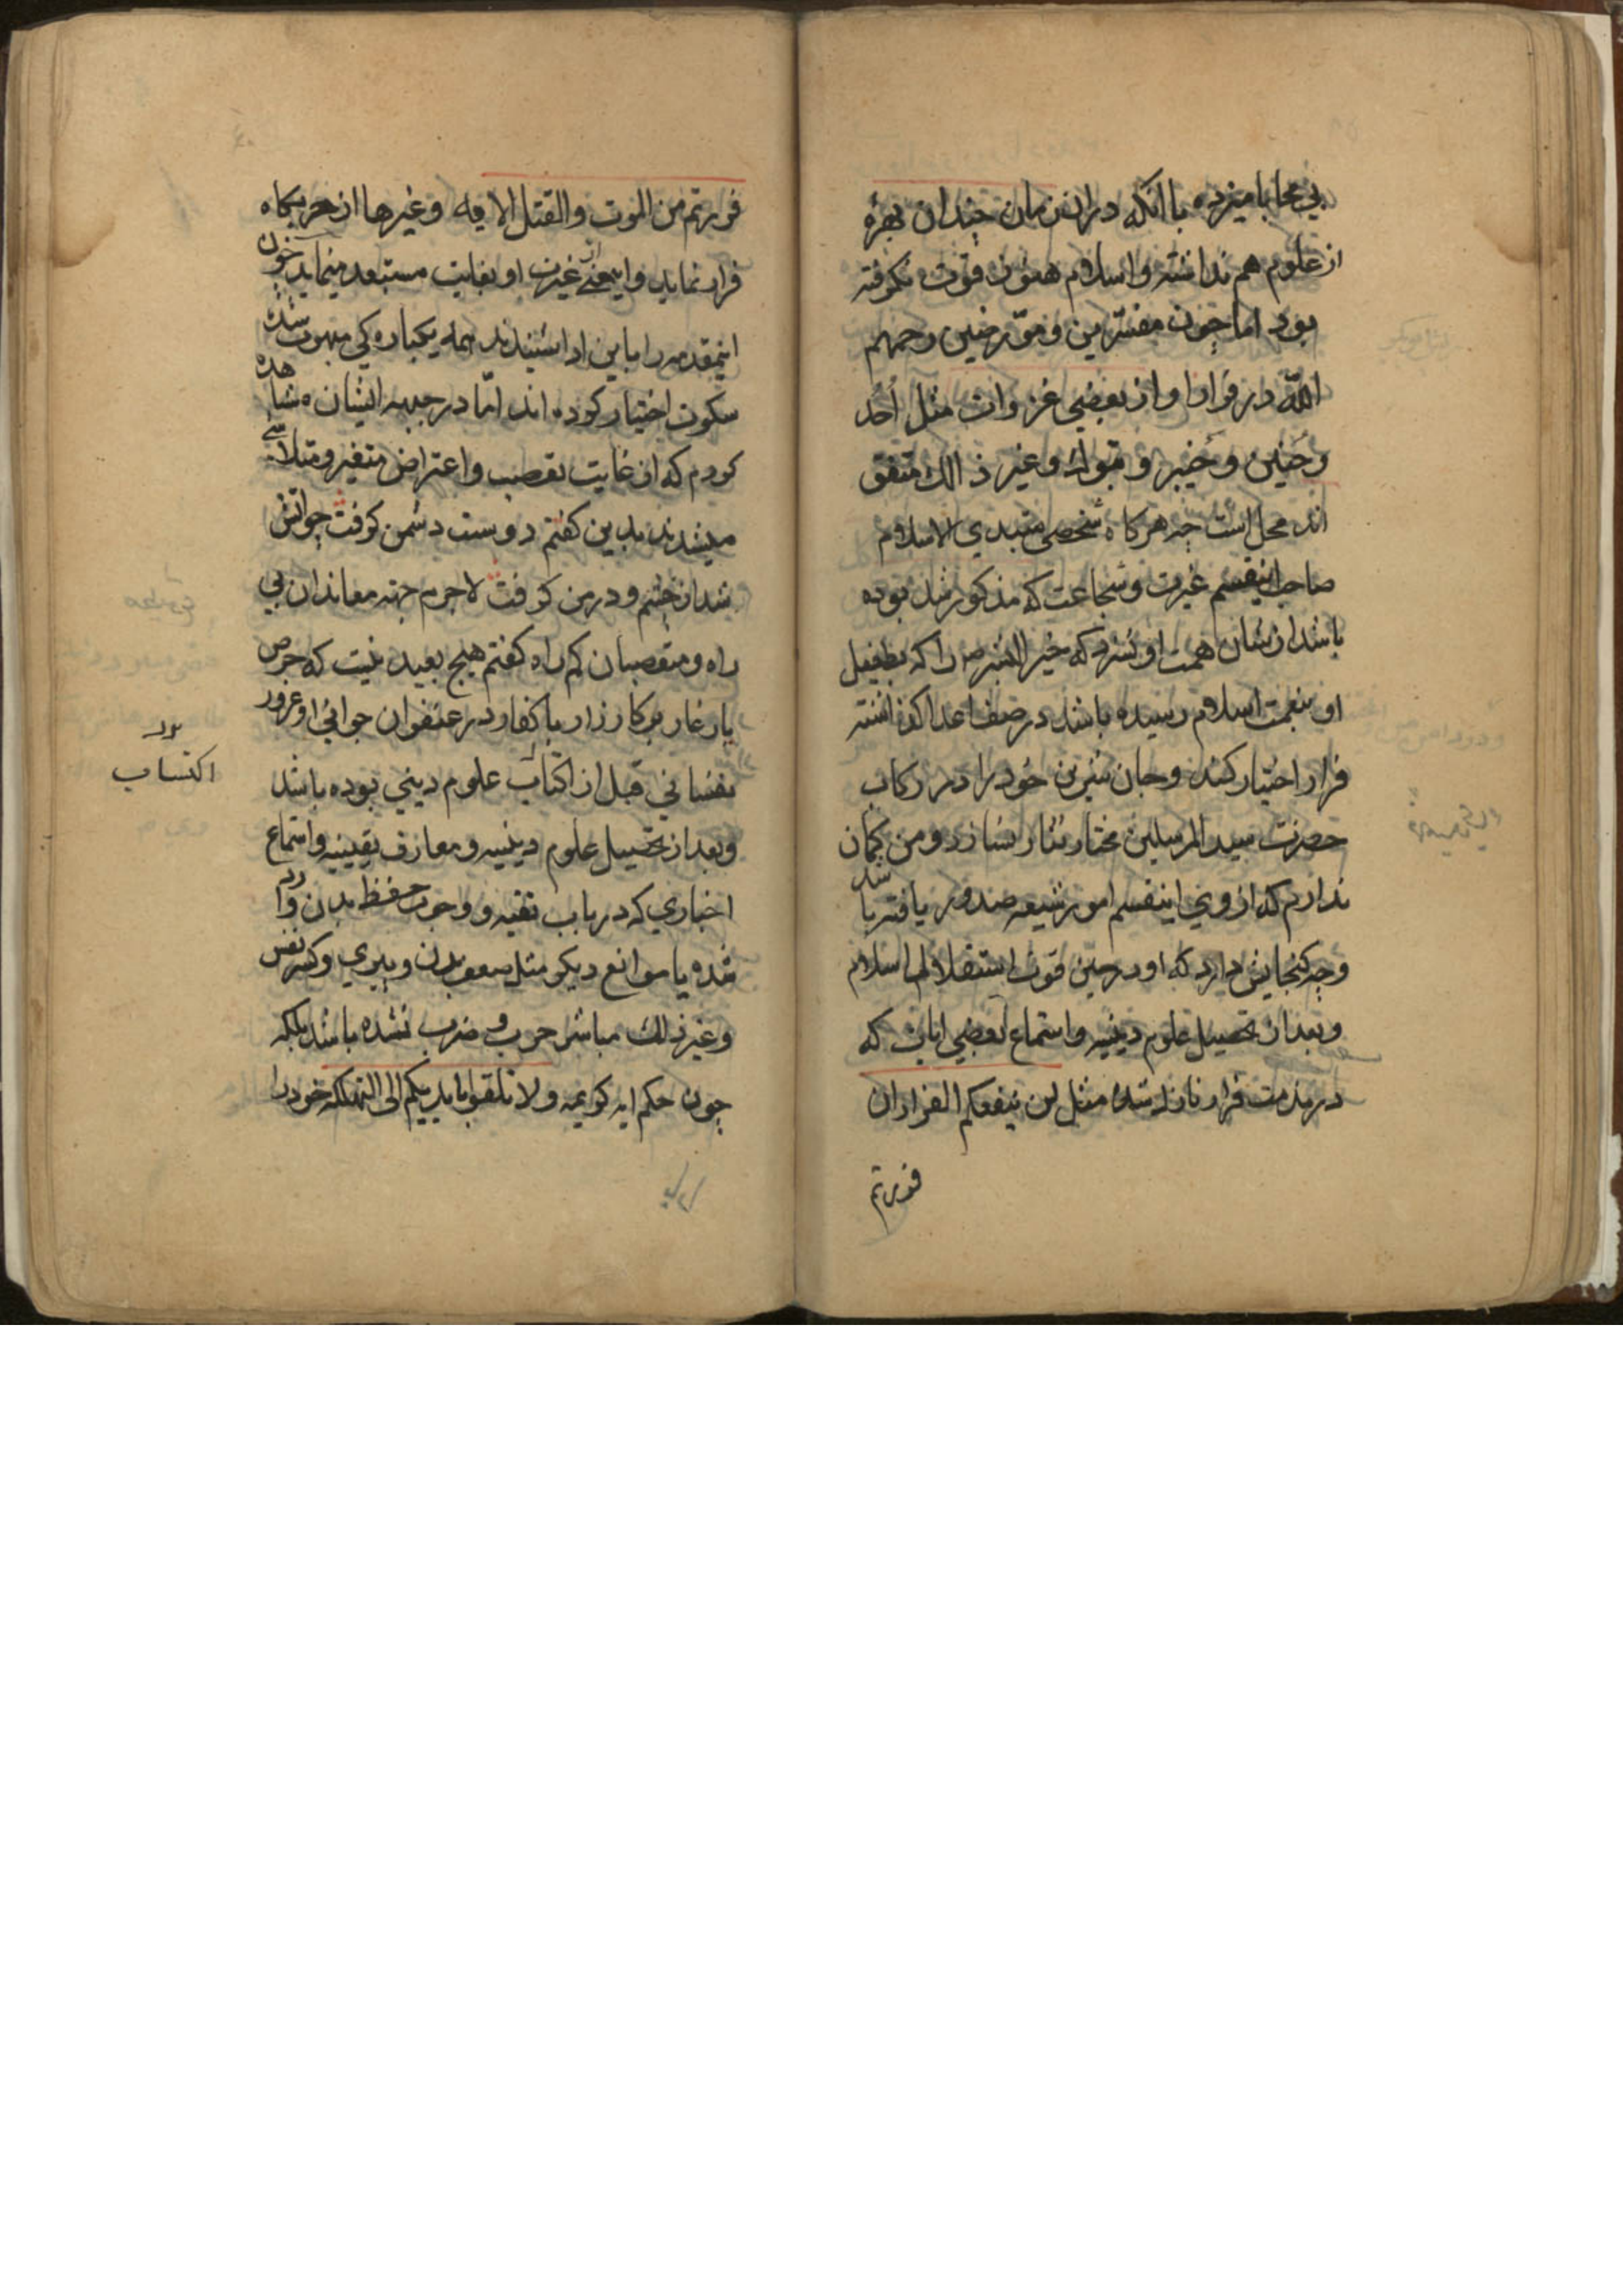 بي محابا ميزده با انكه در ان زمان چندان بهرۀ
از علوم هم نداشته و اسلام هنوز قوت نكرفته
بود اما چون مفسّرين و مورّخين رحمهم
الله در فرار او از بعضي غزوات مثل اُحُد
وحُنين و خُيبر و تبوك و غير ذالك متفق
اند محل است چه هركاه شخصي مبتدي الاسلام
صاحب اينقسم غيرت و شجاعت كه مذكور شد بوده
باشد از شان همت او نسزد كه خير البشر ص را كه بطفيل
او بنعمت اسلام رسيده باشد در صف اعدا كذاشته
فرار اختيار كند و جان شيرين خود را در ركاب
حضرت سيد المرسلين مختار نثار نسازد و من كمان
ندارم كه از وي اينقسم امور شيعه صدور يافته باشد
وچه كنجايش دارد كه او در حين قوت استقلال اسلام
و بعد از تحصيل علوم دينيه و استماع بعضي ايات كه
در مذمت فرار نازل شده مثل لن ينفعكم الفرار ان
فررتم
فررتم من الموت والقتل الايه و غيرها از حربكاه
فرار نمايد و اين معني از غيرت او بغايت مستبعد مينمايد چون
اينمقدمه را باين ادا شنيدند همه يكباره كي مبهوت شده
سكوت اختيار كرده اند امّا در جبهه ايشان مشاهده
كردم كه از غايت تعصب و اعتراض متغير و متلاشي
ميشدند بدين كفتم دوست دشمن كرفت چو اتش
شد از خشم و در من كرفت لاجرم جهته معاندان بي
راه و متعصبان كم راه كفتم هيچ بعيد نيست كه حرص
يار غار بر كارزار با كفار در عنفوان جواني او غرور
نفساني قبل از اكتاب علوم ديني بوده باشد
و بعد از تحصيل علوم دينيه و معارف يقينيه و استماع
اخباري كه در باب تقيه و وجوب حفظ بدن وارد
شده يا موانع ديكر مثل ضعف بدن و پيري و كسر نفس
و غير ذلك مباشر حرب و ضرب نشده باشد بلكه
چون حكم ايه كريمه ولا تلقوا بايديكم الى التهلكه خود را
اكتساب